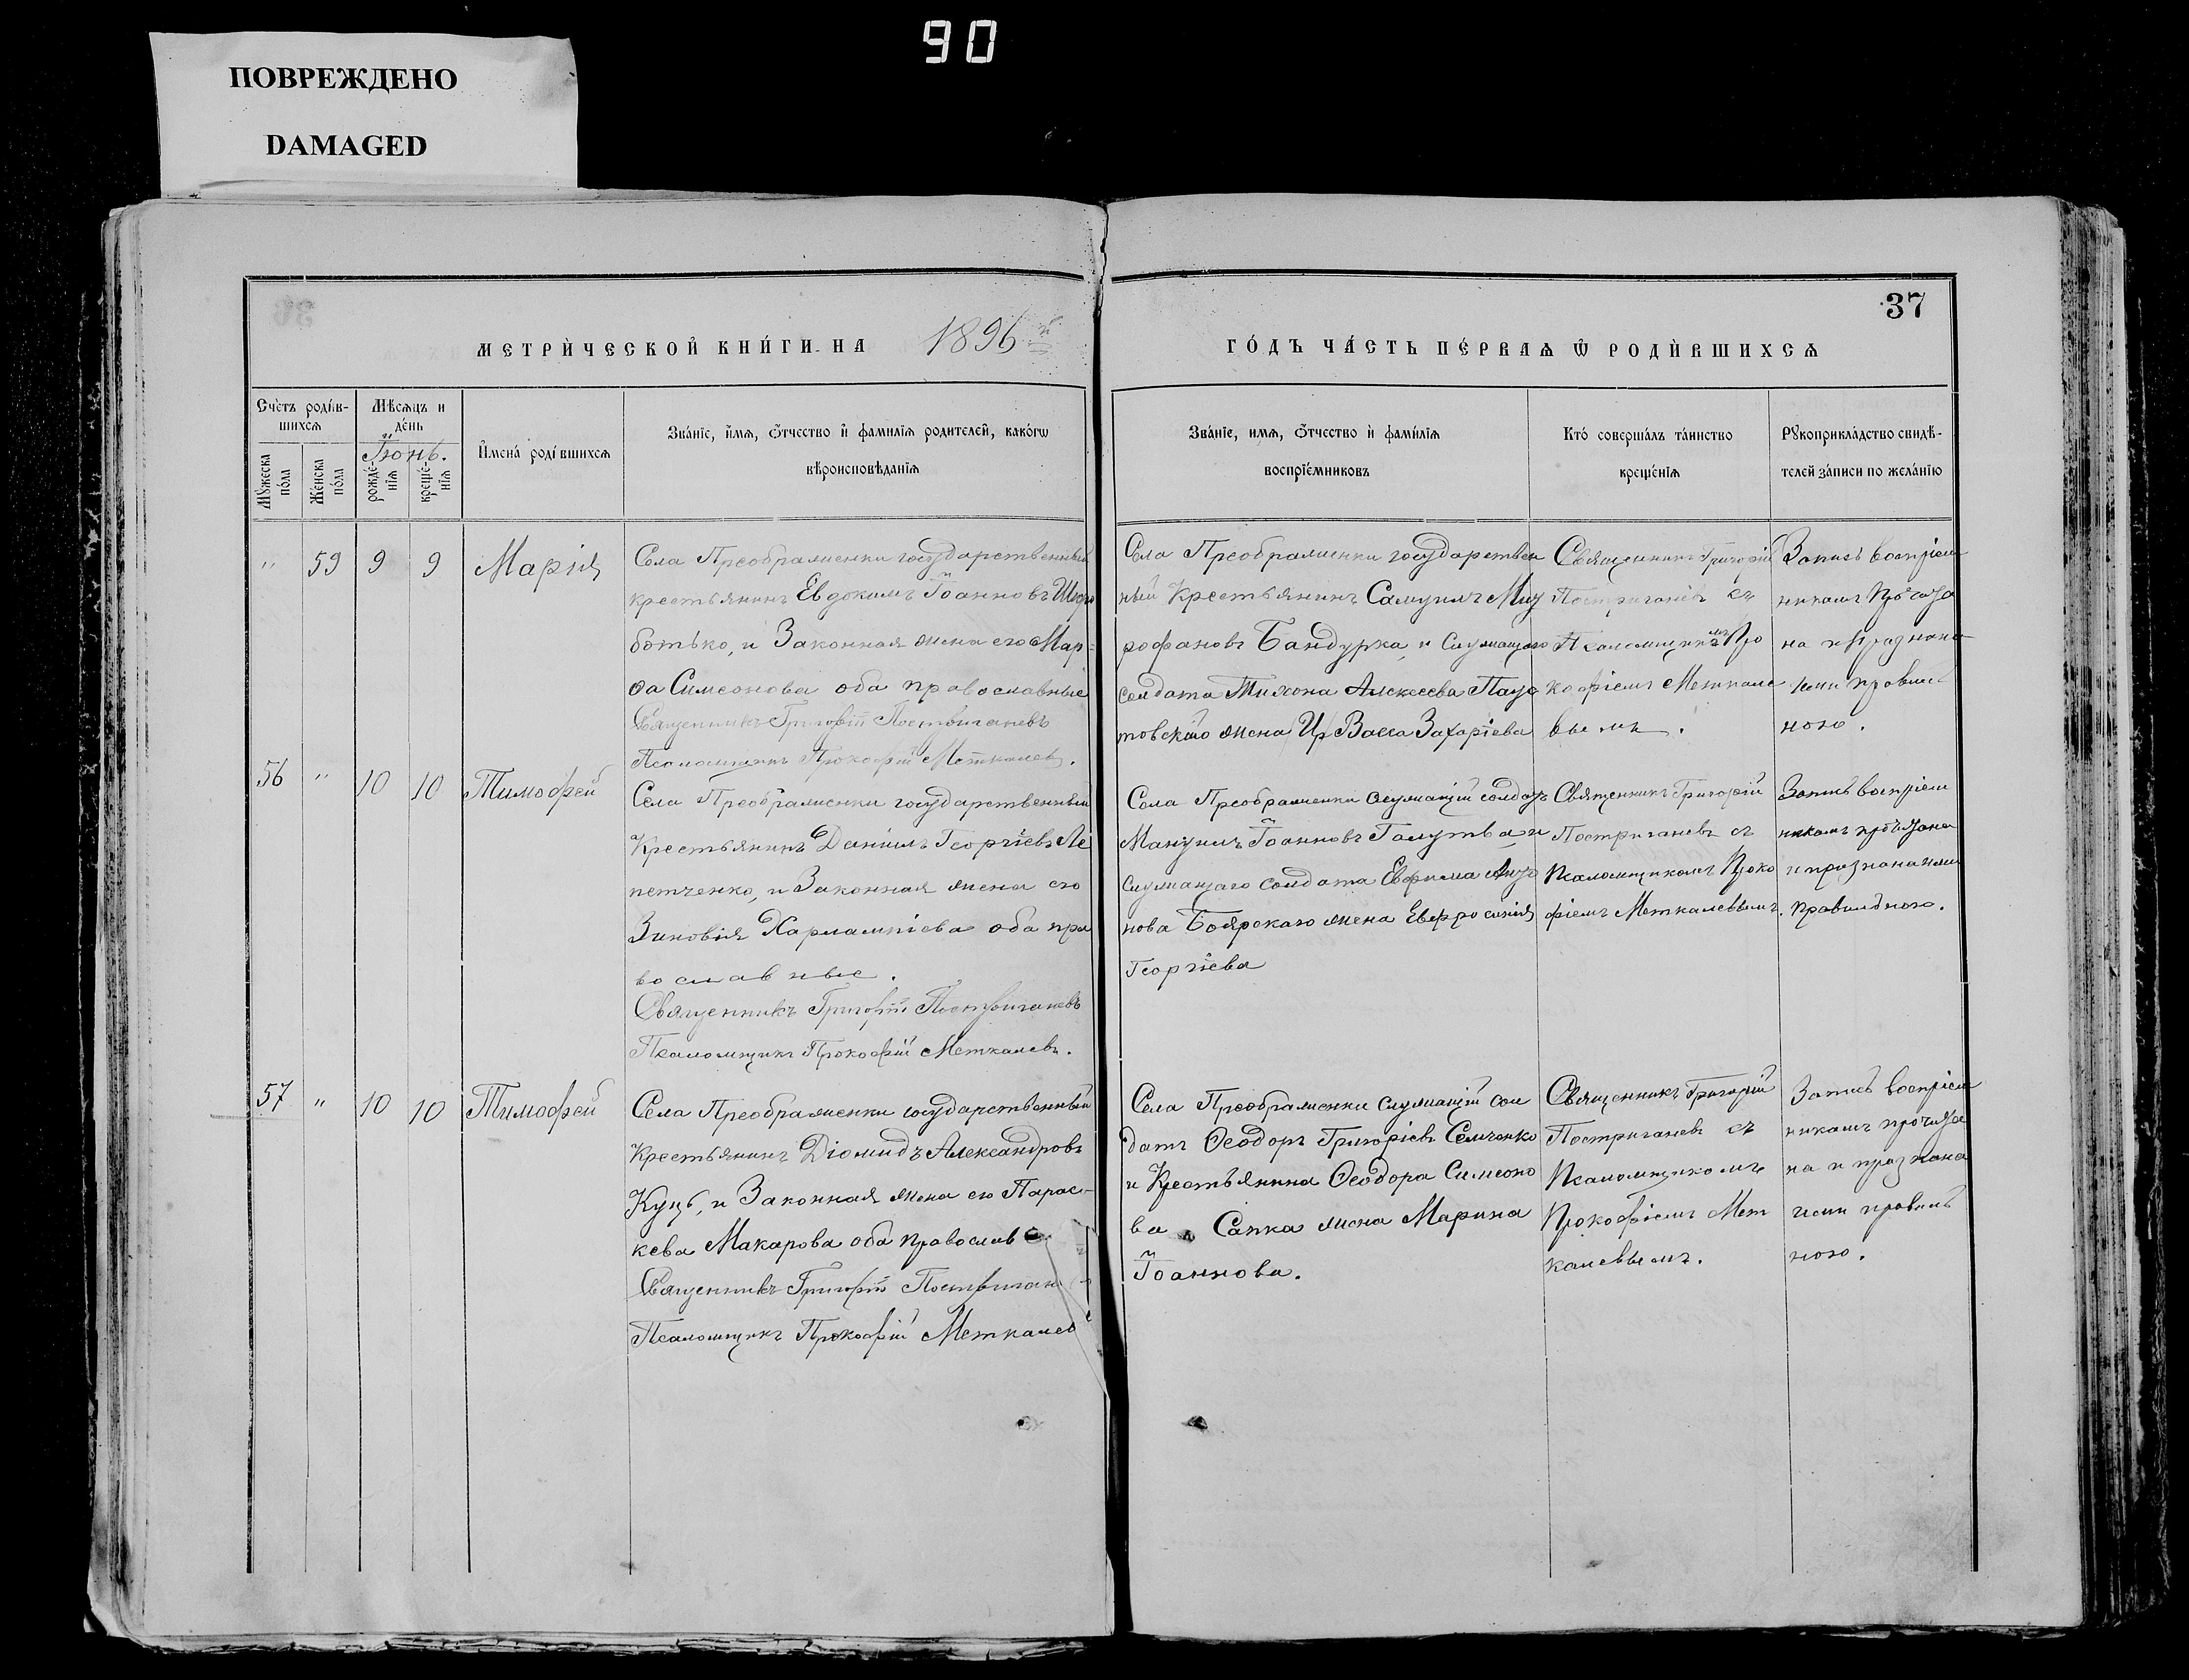 90
ПОВРЕЖДЕНО
DAMAGED
37
МЕТРИ́ЧЕСКОЙ КНИ́ГИ НА 1896 й
ГО́ДЪ ЧА́СТЬ ПЕ́РВАѦ Ѡ РОДИ́ВШИХСѦ
Сче́тъ роди́в-
шихсѧ
Мѣсѧцъ и
де́нь
Іюнь.
Му́жеска
по́ла
Же́нска
по́ла
рожде́-
нїѧ
креще́-
нїѧ
Имена́ роди́вшихсѧ
Зва́нїе, и́мѧ, ѻ́тчество и фами́лїѧ родителей, како́гѡ
вѣроисповѣ́данїѧ
Зва́нїе, имѧ, ѻ́тчество и фами́лїѧ
воспрїе́мниковъ
Кто́ соверша́лъ та́инство
креще́нїѧ
Рꙋкоприкла́дство свидѣ́-
телей за́писи по жела́нїю
" 59 9 9 Марія
Села Преображенки государственный
крестьянинъ Евдокимъ Іоанновъ
ботько, и Законная жена его Мар=
ѳа Симеонова оба православные
Священникъ Григорій Постригачевъ
Псаломщикъ Прокофій Меткалев.
Села Преображенки государствен
ный Крестьянинъ Самуилъ Мит
рофановъ Бандурка, и Служащаго
солдата Тихона Алексеева
товскаго жена Васса Захаріева
Священникъ Григорій
Постригачевъ съ
Псаломщикомъ Про
кофіемъ Меткале
вымъ.
Запись воспріем
никамъ прочита
на и признана
ими правиль
ною.
56 " 10 10 Тимофей
Села Преображенки государственный
Крестьянинъ Даніилъ Георгіевъ Ле
петченко, и Законная жена его
Зиновія Харлампіева оба пра
вославные.
Священникъ Григорій Постригачевъ
Псаломщикъ Прокофій Меткалевъ.
Села Преображенки служащій солдатъ
Мануилъ Іоанновъ Галутва и
Служащаго солдата Евфима
нова Боярскаго жена Евфросинія
Георгіева
Священникъ Григорій
Постригачевъ съ
Псаломщикомъ Проко
фіемъ Меткалевымъ.
Запись воспріем
никамъ прочитана
и признана ими
правильною.
57 " 10 10 Тимофей
Села Преображенки государственный
Крестьянинъ Діомидъ Александровъ
Куцъ, и Законная жена его Парас-
кева Макарова оба православ
Священникъ Григорій Постригач
Псаломщикъ Прокофій Меткалев
Села Преображенки служащій сол
датъ Ѳеодоръ Григоріевъ Семченко
и Крестьянина Ѳеодора Симеоно
ва Сапка жена Марина
Іоаннова.
Священникъ Григорій
Постригачевъ съ
Псаломщикомъ
Прокофіемъ Мет
калевымъ.
Запись воспріем
никамъ прочита
на и признана
ими правиль
ною.